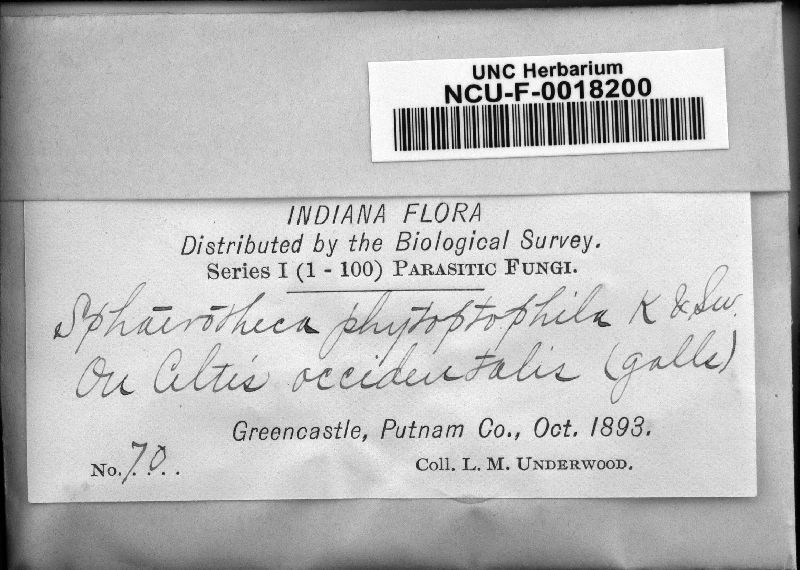 UNC Herbarium
NCU-F-0018200
INDIANA FLORA
Distributed by the Biological Survey.
Series I (1 - 100) PARASITIC FUNGI.
Sphaerotheca phytoptophila K & Sw.
On Celtis occidentalis (galls)
Greencastle, Putnam Co., Oct. 1893.
No. 70. . .
Coll. L. M. UNDERWOOD.